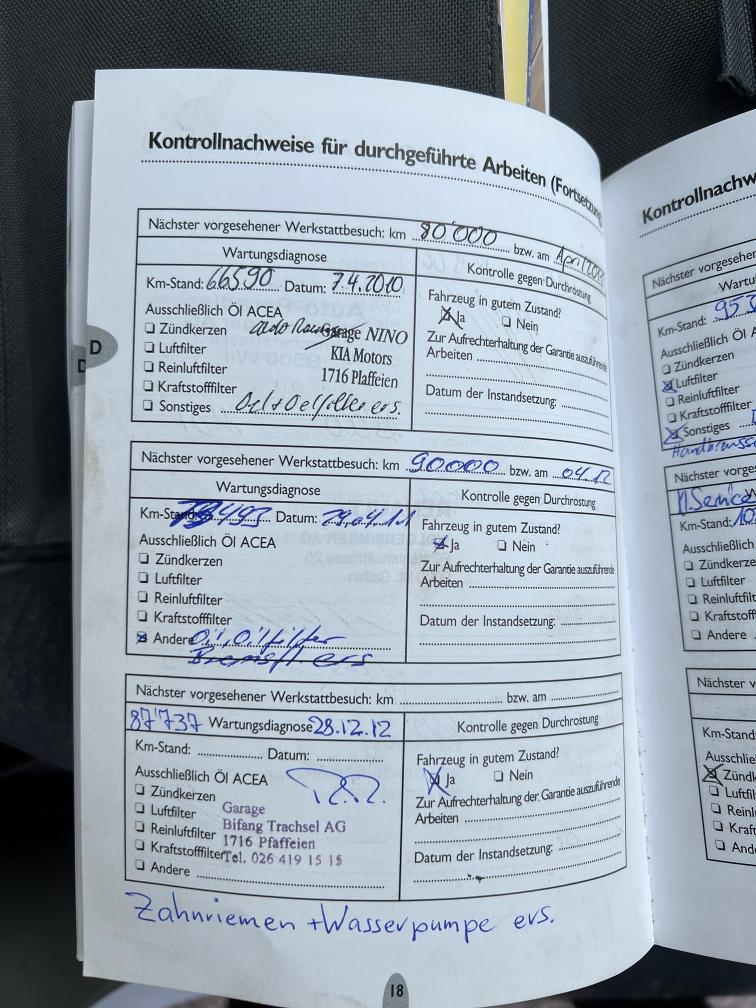 Kontrollnachweise für durchgeführte Arbeiten (Fortsetzung
Nächster vorgesehener Werkstattbesuch: km 80'000 bzw. am April
Wartungsdiagnose
Kontrolle gegen Durchrostung
Km-Stand: 66590 Datum: 7.4.2010
Ausschließlich Öl ACEA
Zündkerzen
Luftfilter
Reinluftfilter
Kraftstofffilter
Sonstiges Oel + Oelfilter ers.
Garage NINO
KIA Motors
1716 Plaffeien
Fahrzeug in gutem Zustand?
Ja Nein
Zur Aufrechterhaltung der Garantie auszuführende
Arbeiten
Datum der Instandsetzung:
D
D
Nächster vorgesehener Werkstattbesuch: km 90000 bzw. am 04.12
Wartungsdiagnose
Kontrolle gegen Durchrostung
Km-Stand Datum: 29.04.11
Ausschließlich Öl ACEA
Zündkerzen
Luftfilter
Reinluftfilter
Kraftstofffilter
Andere Öl, Oilfilter
Bremsfl ers
Fahrzeug in gutem Zustand?
Ja Nein
Zur Aufrechterhaltung der Garantie auszuführende
Arbeiten
Datum der Instandsetzung:
Nächster vorgesehener Werkstattbesuch: km bzw. am
87'737 Wartungsdiagnose 28.12.12
Kontrolle gegen Durchrostung
Km-Stand: Datum:
Ausschließlich Öl ACEA
Zündkerzen
Luftfilter
Reinluftfilter
Kraftstofffilter
Andere
Garage
Bifang Trachsel AG
1716 Pfaffeien
Tel. 026 419 15 15
Fahrzeug in gutem Zustand?
Ja Nein
Zur Aufrechterhaltung der Garantie auszuführende
Arbeiten
Datum der Instandsetzung:
Zahnriemen + Wasserpumpe ers.
18
Kontrollnachw
Nächster vorgesehener
Wartu
Km-Stand: 95
Ausschließlich Öl A
Zündkerzen
Luftfilter
Reinluftfilter
Kraftstofffilter
Sonstiges
Nächster vorges
Km-Stand: 10
Ausschließlich
Zündkerze
Luftfilter
Reinluftfilt
Kraftstofff
Andere
Nächster v
Km-Stand:
Ausschließ
Zünd
Luftfil
Rein
Kraft
And